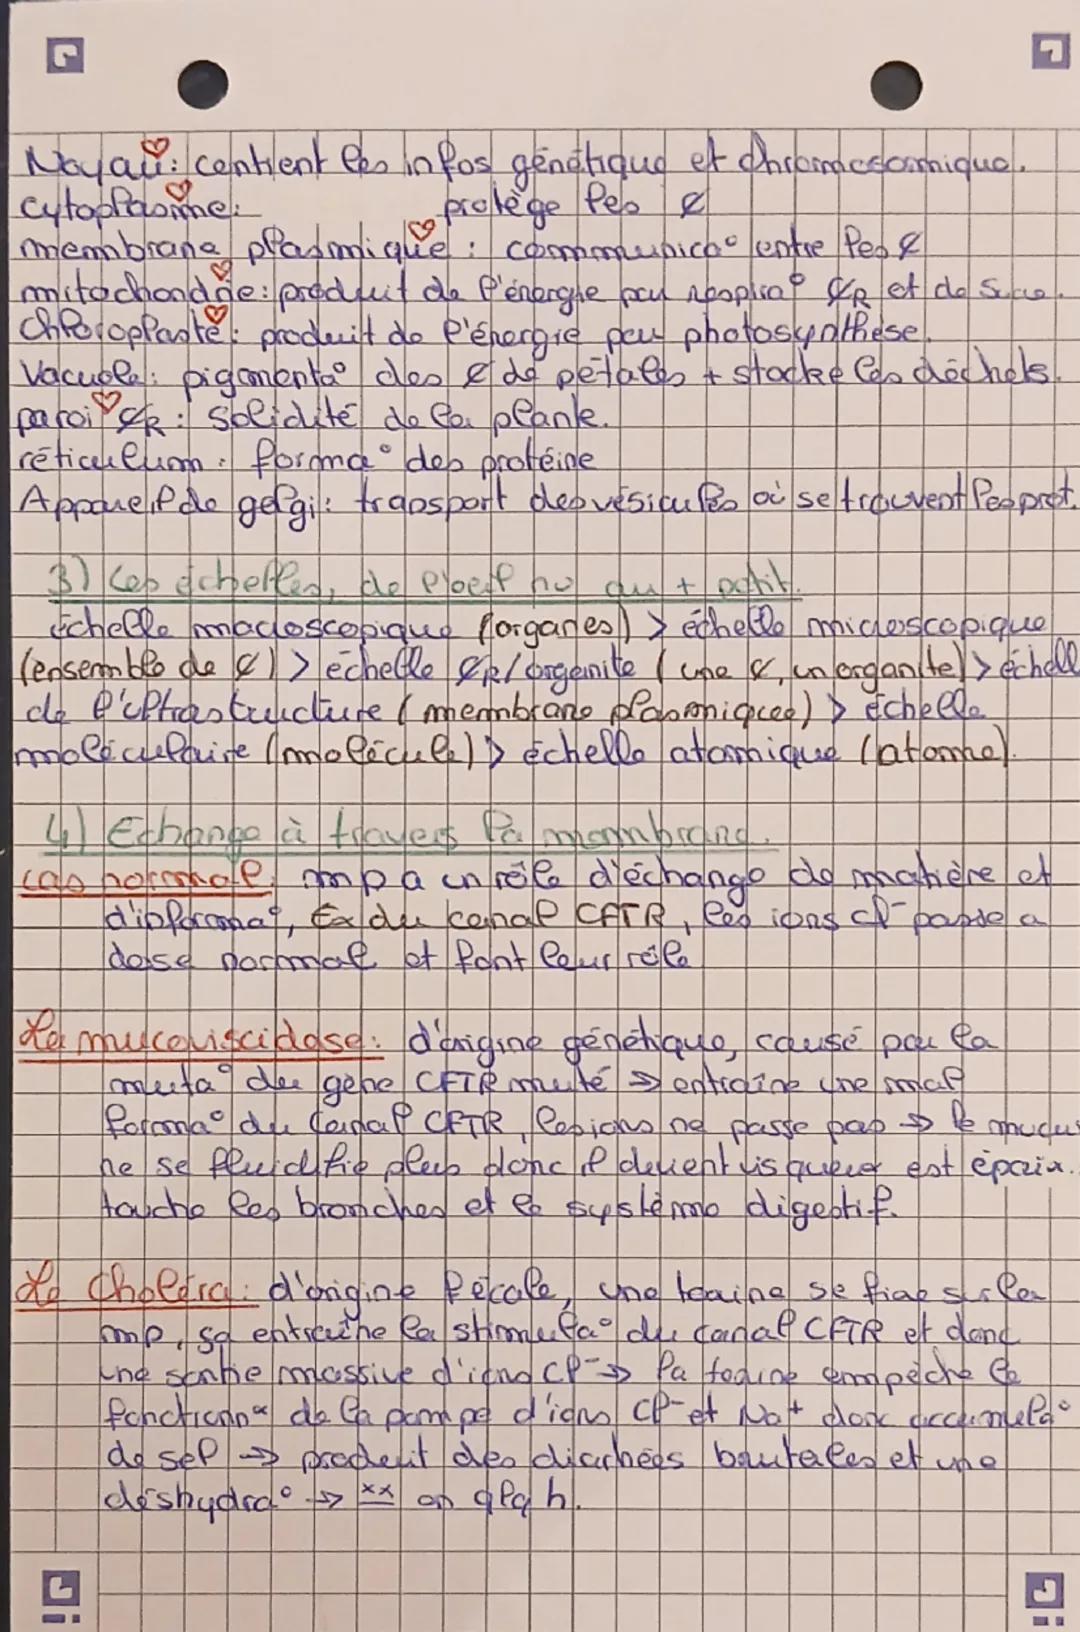 Noyau: contient les infos génétique et chromosomique.
cytoplasme: protège les ȼ
membrane plasmique : communica° entre les ȼ
mitochondrie: produit de l'énergie par respira° ȼR et de sucre.
Chloroplaste: produit de l'énergie par photosynthèse.
Vacuole: pigmenta° des ȼ de pétales + stocke les déchets.
paroi ȼR : solidité de la plante.
réticulum : forma° des protéine
Appareil de golgi: transport des vésicules où se trouvent les prot.
3) Les échelles, de l'oeil nu au + petit.
échelle macroscopique (organes) > échelle microscopique
(ensemble de ȼ) > échelle ȼR/organite (une ȼ, un organite) > échelle
de l'ultrastructure (membrane plasmique) > échelle
moléculaire (molécule) > échelle atomique (atome).
4) Echange à travers la membrane.
cas normal: mp a un rôle d'échange de matière et
d'informa°, Ex du canal CFTR, les ions cl⁻ passe a
dose normal et font leur rôle
La mucoviscidose: d'origine génétique, causé par la
muta° du gène CFTR muté → entraîne une mal
forma° du canal CFTR, les ions ne passe pas → le mucus
ne se fluidifie plus donc il devient visqueux est épaix.
touche les bronches et le système digestif.
Le Choléra: d'origine fécale, une toxine se fixe sur les
mp, sa entraîne la stimula° du canal CFTR et donc
une sortie massive d'ions Cl⁻ → la toxine empêche le
fonctionnᵗ de la pompe d'ions Cl⁻ et Na⁺ donc accumula°
de sel → produit des diarhées brutales et une
déshydra° → xx en qlq h.